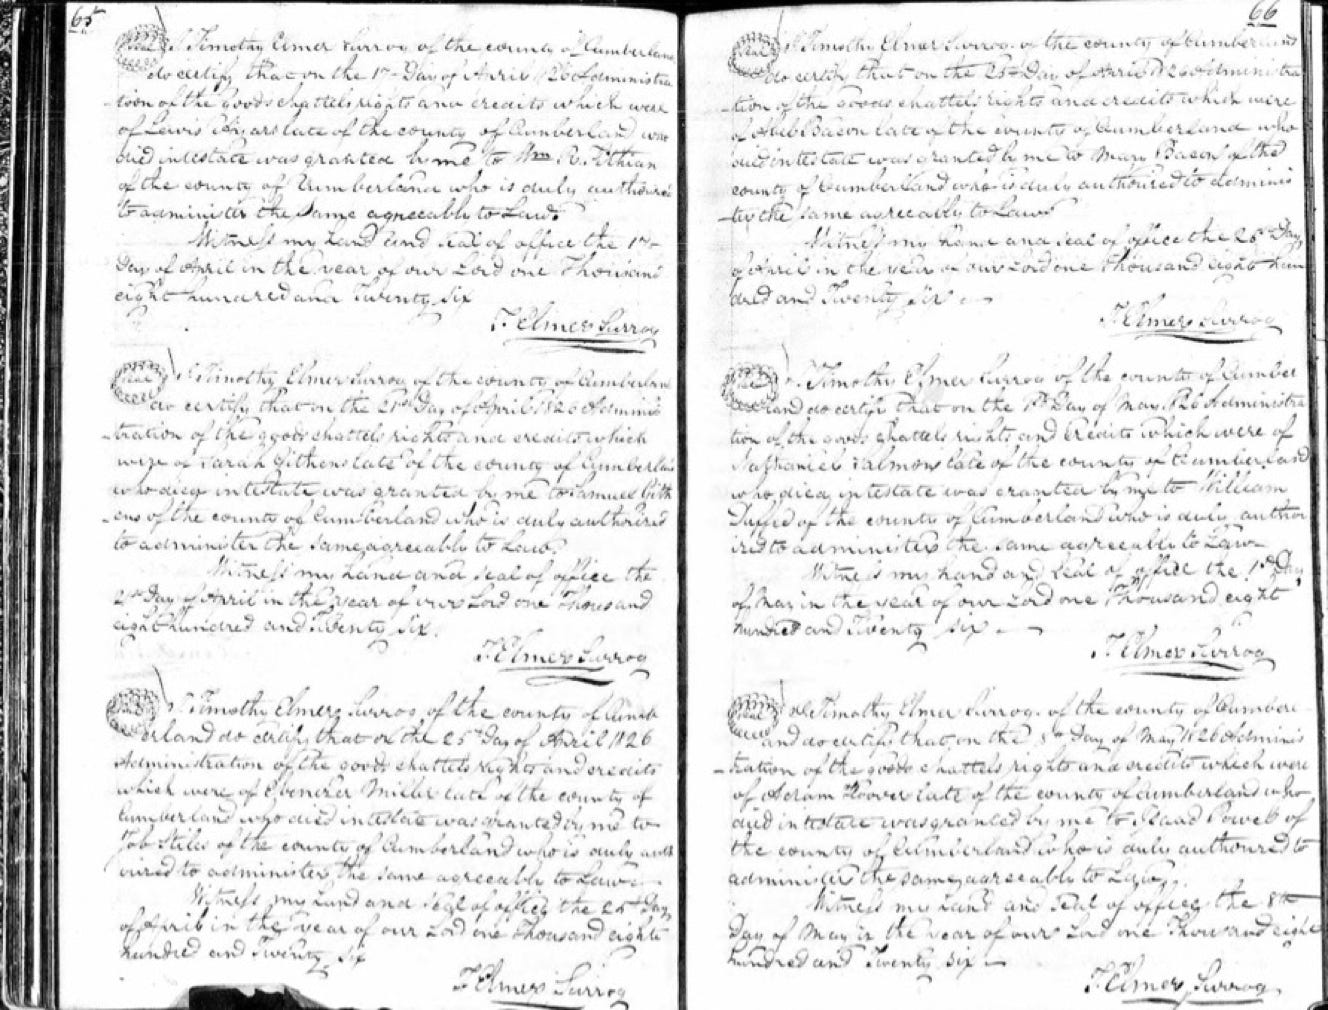 65
Seal I Timothy Elmer Surrog of the county of Cumberland
do certify that on the 1st Day of April 1826 Administra
tion of the goods chattels rights and credits which were
of Lewis late of the county of Cumberland who
died intestate was granted by me to Wm R. Fithian
of the county of Cumberland who is duly authoured
to administer the same agreeably to Law
Witness my hand and seal of office the 1st
Day of April in the year of our Lord one Thousand
eight hundred and Twenty Six
T. Elmer Surrog
Seal I Timothy Elmer Surrog of the county of Cumberland
do certify that on the 21st Day of April 1826 Adminis
tration of the goods chattels rights and credits which
were of Sarah Githens late of the county of Cumberlan
who died intestate was granted by me to Samuel Gith
ens of the county of Cumberland who is duly authorired
to administer the same agreeably to Law.
Witness my hand and seal of office the
21st Day of April in the year of our Lord one Thousand
eight hundred and Twenty Six.
T. Elmer Surrog
Seal I Timothy Elmer Surrog of the county of Cumb
erland do certify that on the 25th Day of April 1826
Administration of the goods chattels rights and credits
which were of Ebenezer Miller late of the county of
Cumberland who died intestate was granted by me to
Job Stiles of the county of Cumberland who is duly auth
oured to administer the same agreeably to Law
Witness my hand and seal of office the 25th Day
of April in the year of our Lord one Thousand eight
hundred and Twenty Six
T. Elmer Surrog
66
Seal I Timothy Elmer Surrog. of the county of Cumberland
do certify that on the 25th Day of April 1826 Administra
tion of the goods chattels rights and credits which were
of Abel Bacon late of the county of Cumberland who
died intestate was granted by me to Mary Bacon of the
county of Cumberland who is duly authoured to adminis
ter the same agreeably to Law
Witness my hand and seal of office the 25th Day
of April in the year of our Lord one thousand eight hun
dred and Twenty Six
T. Elmer Surrog
Seal I Timothy Elmer Surrog of the county of Cumber
land do certify that on the 1st Day of May 1826 Administra
tion of the goods chattels rights and credits which were of
Nathaniel Salmons late of the county of Cumberland
who died intestate was granted by me to William
Duffed of the county of Cumberland who is duly author
ired to administer the same agreeably to Law
Witness my hand and seal of office the 1st Day
of May in the year of our Lord one Thousand eight
hundred and Twenty six
T. Elmer Surrog
Seal I Timothy Elmer Surrog. of the county of Cumberl
and do certify that on the Day of May 1826 Adminis
tration of the goods chattels rights and credits which were
of Hoover late of the county of cumberland who
died intestate was granted by me to of
the county of Cumberland who is duly authoured to
administer the same agreeably to Law
Witness my hand and seal of office the 8th
Day of May in the year of our Lord one Thousand eight
hundred and Twenty six
T. Elmer Surrog